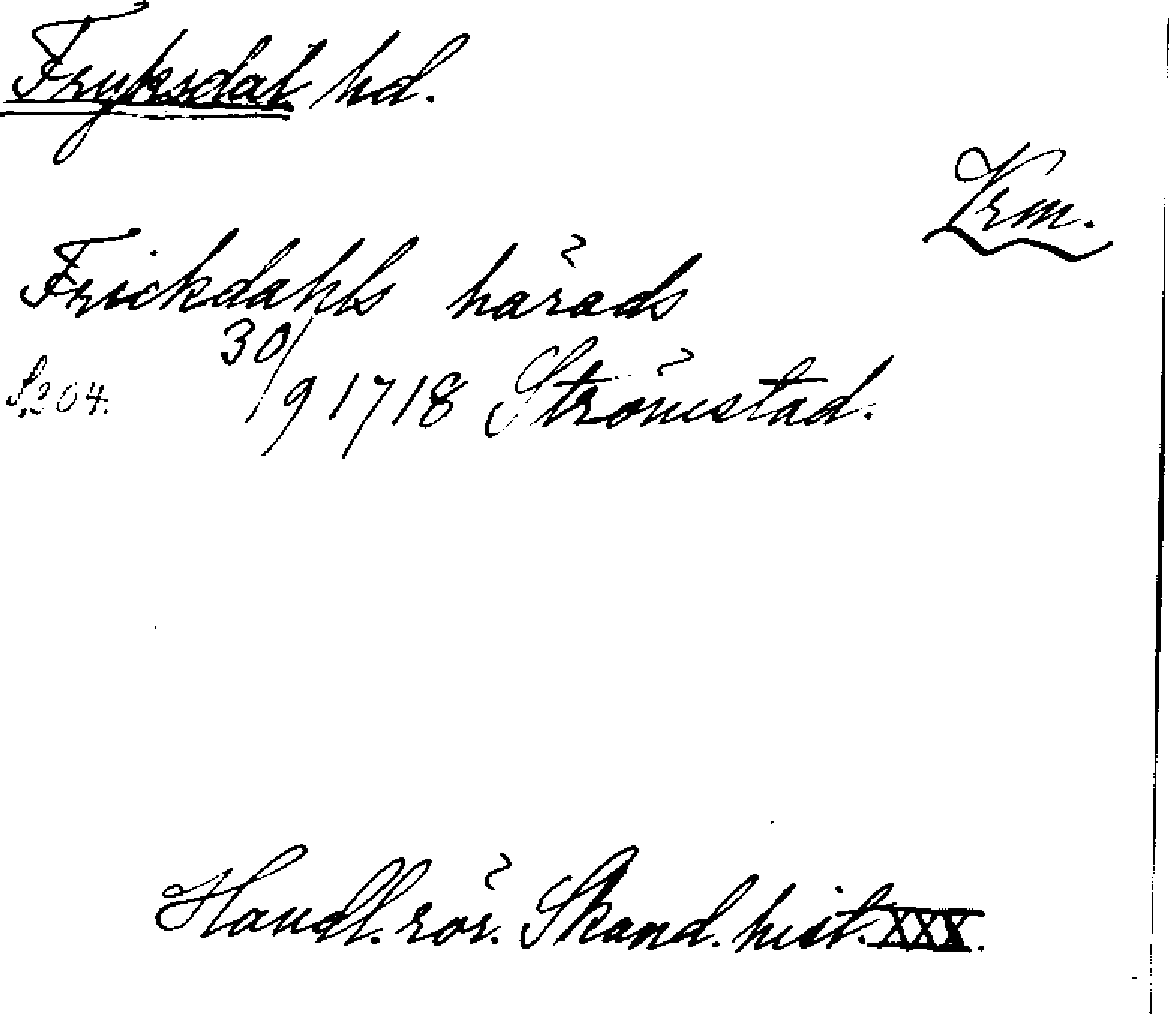 Fryksdal hd.
Vrm.
Frickdahls härads
S. 204. 30/9 1718 Strömstad.
Handl. rör. Skand. hist. XXX.